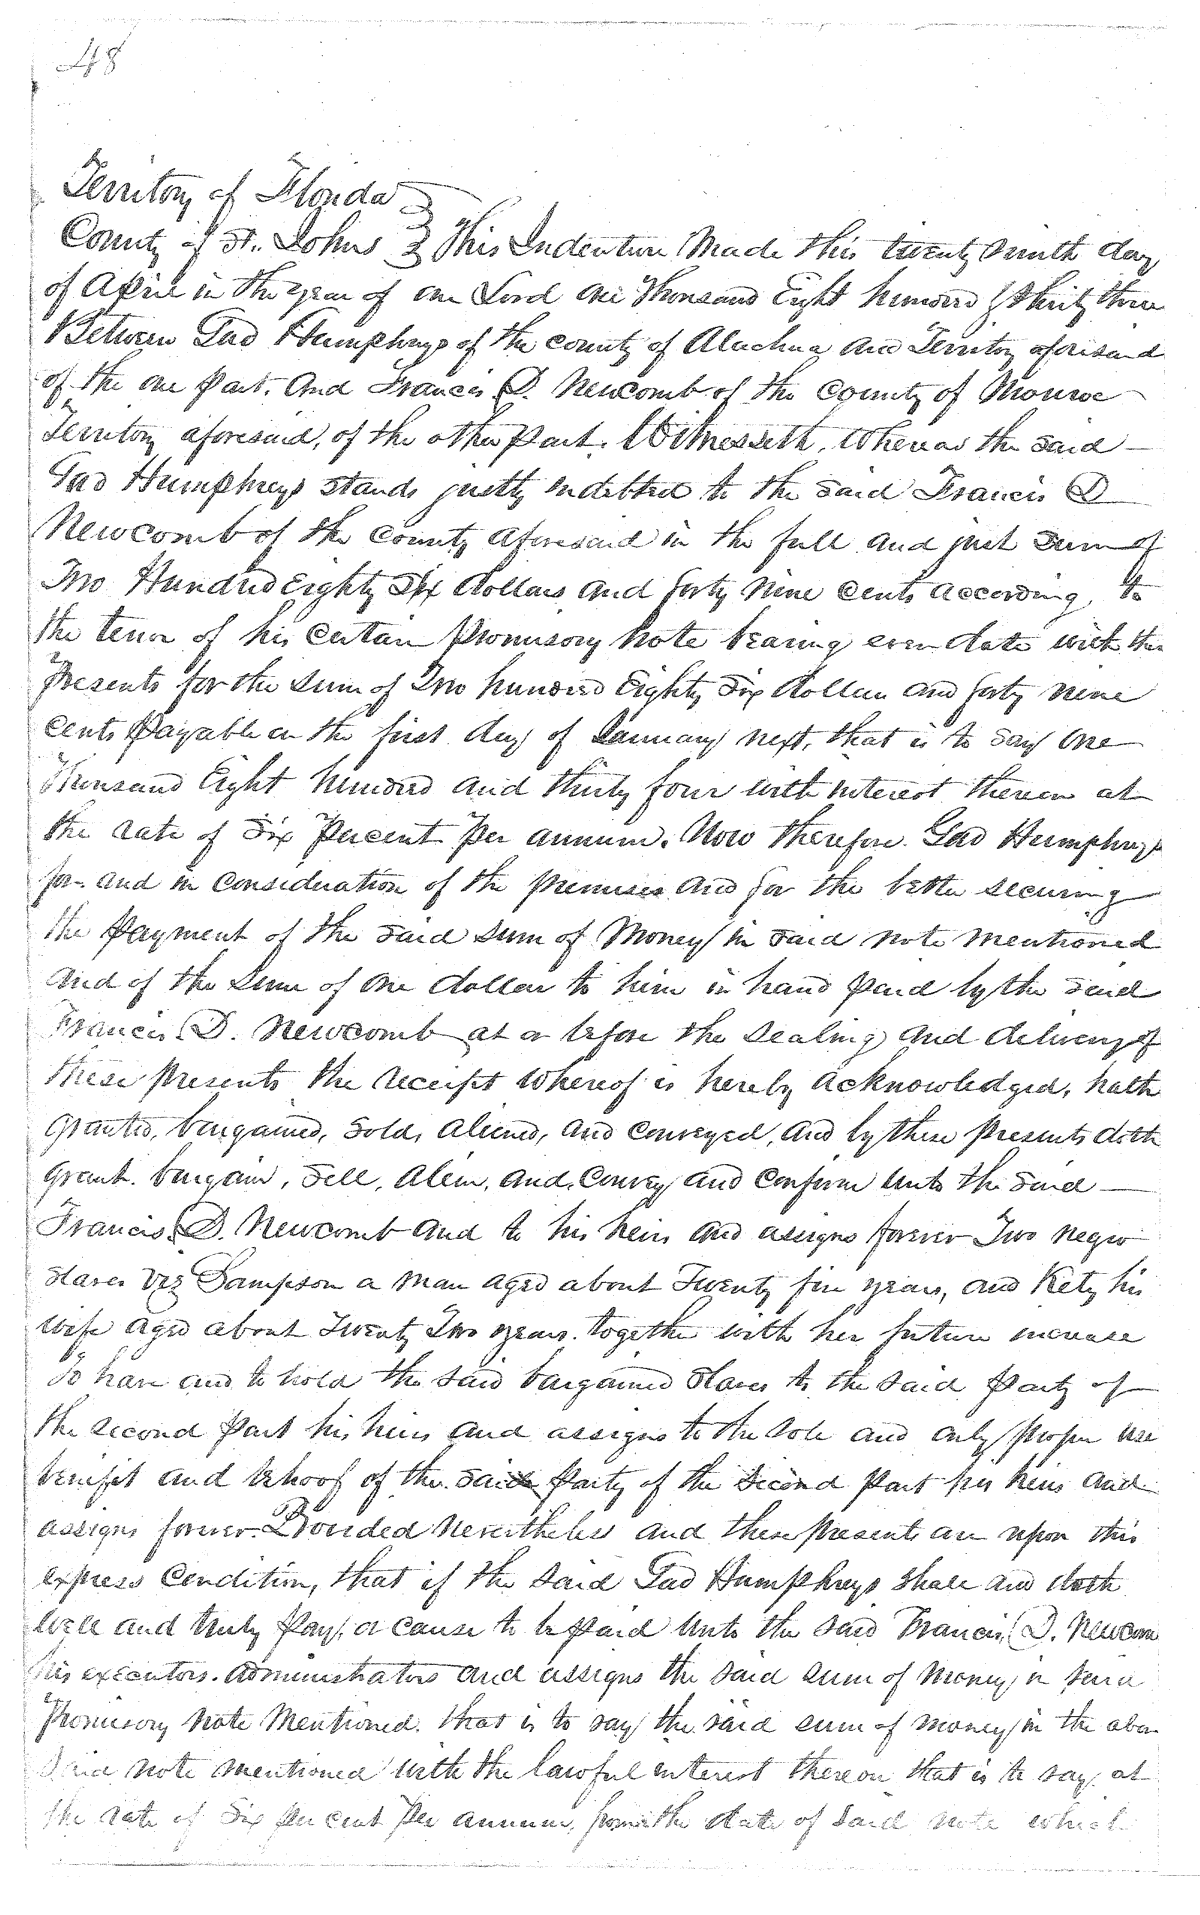 48
Territory of Florida
County of St. Johns } This Indenture Made this twenty ninth day
of April in the year of our Lord one Thousand Eight hundred & thirty three
Between Gad Humphreys of the county of Alachua and Territory aforesaid
of the one part. And Francis D. Newcomb of the County of Monroe
Territory aforesaid, of the other part. Witnesseth. Whereas the said
Gad Humphreys stands justly indebted to the said Francis D
Newcomb of the County aforesaid in the full and just sum of
Two Hundred Eighty Six dollars and forty nine cents according, to
the tenor of his certain promisory note bearing even date with these
presents for the sum of Two hundred Eighty six dollars and forty nine
cents payable on the first day of January next, that is to say one
Thousand Eight hundred and thirty four with interest thereon at
the rate of six percent per annum. Now therefore. Gad Humphreys
for and in consideration of the premises and for the better securing
the payment of the said sum of Money in said note mentioned
and of the sum of one dollar to him in hand paid by the said
Francis D. Newcomb at or before the sealing and delivery of
these presents the receipt whereof is hereby acknowledged, hath
granted, bargained, sold, aliened, and conveyed, and by these presents doth
grant. bargain, sell, alien, and, convey and confirm unto the said
Francis D. Newcomb and to his heirs and assigns forever Two negro
slaves viz Sampson a man aged about Twenty five years, and Kety his
wife aged about Twenty Two years. together with her future increase
To have and to hold the said bargained slaves to the said party of
the second part his heirs and assigns to the sole and only proper use
benefit and behoof of the said party of the second part his heirs and
assigns forever. Provided nevertheless and these presents are upon this
express condition, that if the said Gad Humphreys shall and doth
well and truly pay, or cause to be paid unto the said Francis D. Newcom
his executors. administrators and assigns the said sum of money in said
promisory note mentioned. that is to say the said sum of money in the abov
said note mentioned with the lawful interest thereon that is to say, at
the rate of six per cent per annum, from the date of said note which